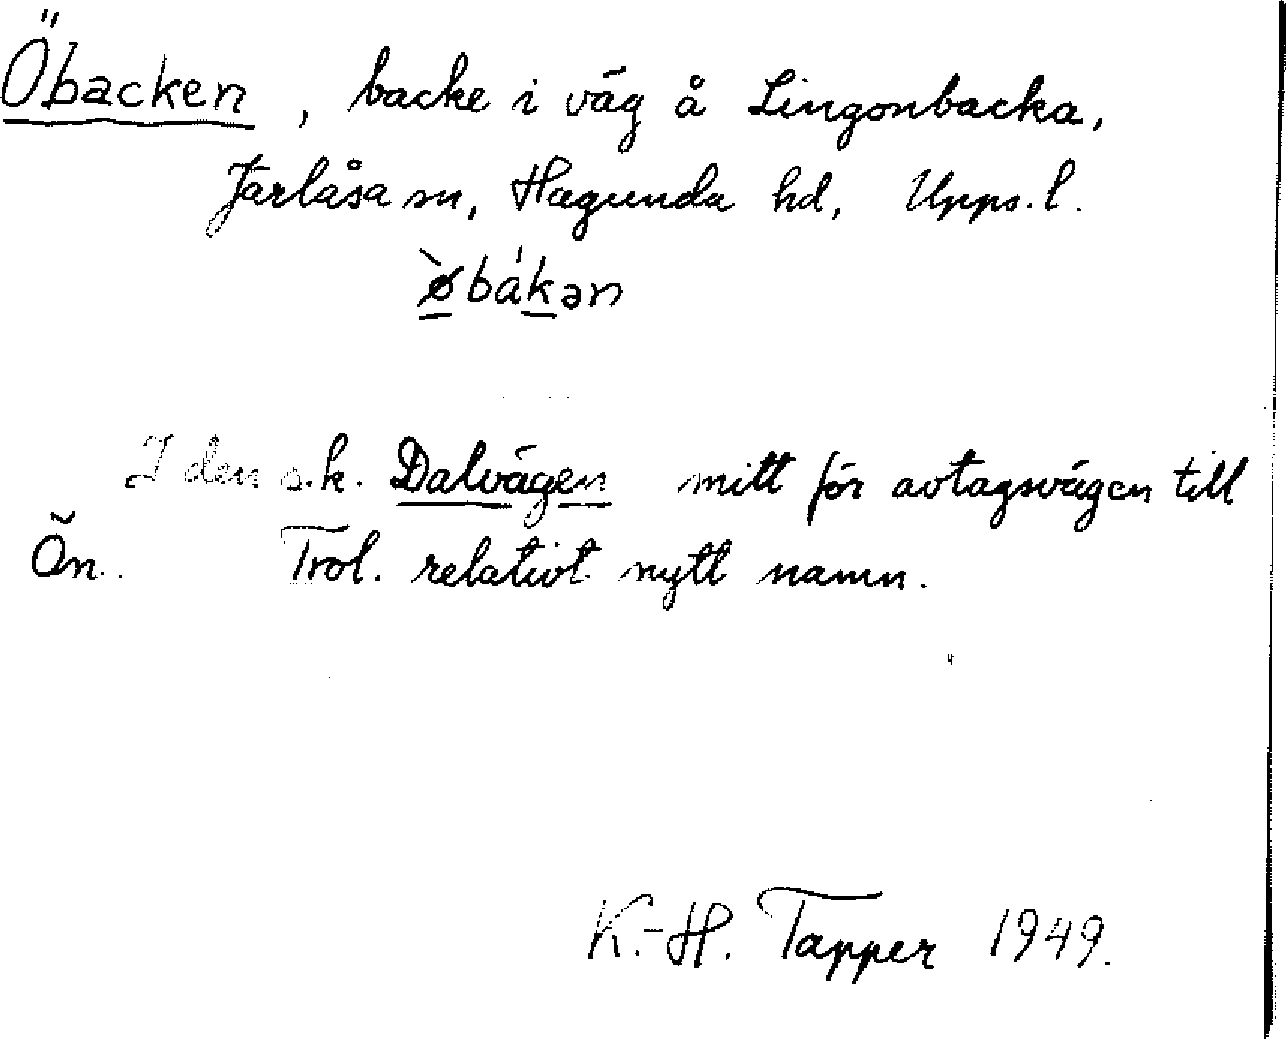 Öbacken, backe i väg å Lingonbacka,
Järlåsa sn, Hagunda hd, Upps. l.
ø̀bákən
I den s.k. Dalvägen mitt för avtagsvägen till
Ön. Trol. relativt nytt namn.
K.-H. Tapper 1949.